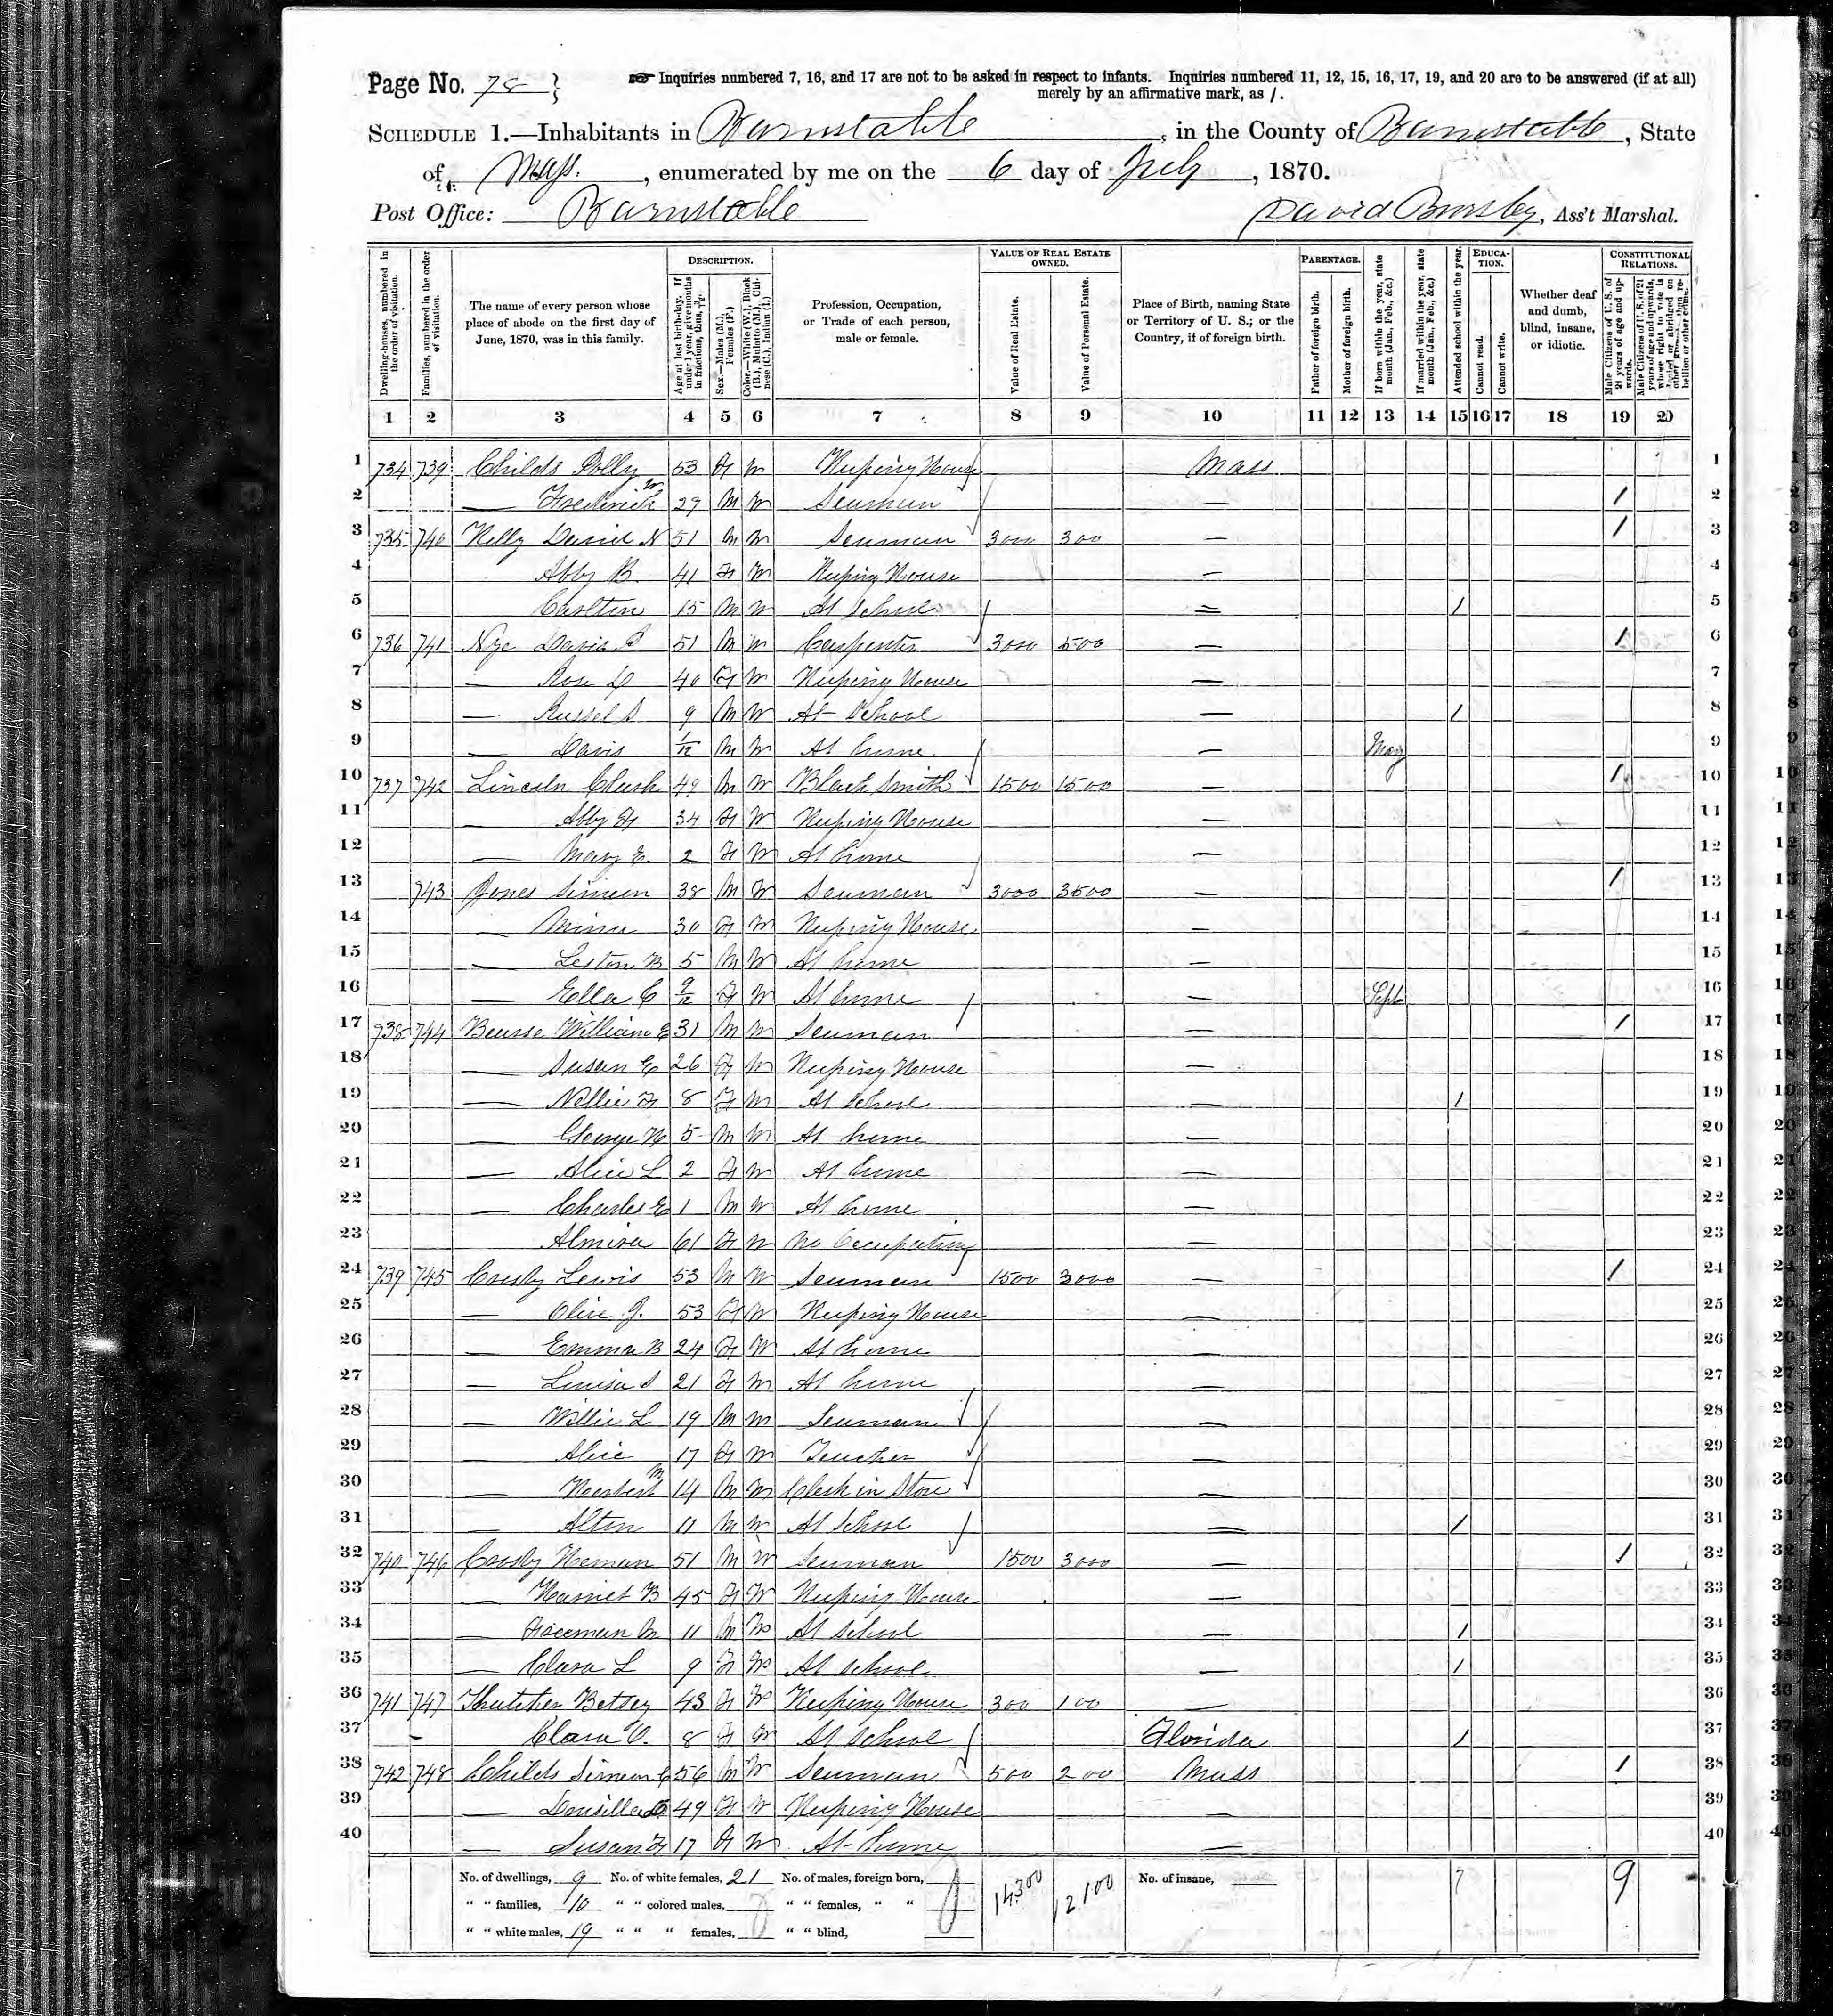 Page No. 78 }
Inquiries numbered 7, 16, and 17 are not to be asked in respect to infants. Inquiries numbered 11, 12, 15, 16, 17, 19, and 20 are to be answered (if at all)
merely by an affirmative mark, as /.
SCHEDULE 1.—Inhabitants in Barnstable, in the County of Barnstable, State
of Mass., enumerated by me on the 6 day of July, 1870.
Post Office: Barnstable David Bursley, Ass't Marshal.
DESCRIPTION. VALUE OF REAL ESTATE OWNED. PARENTAGE. EDUCATION. CONSTITUTIONAL RELATIONS.
Dwelling-houses, numbered in the order of visitation.
Families, numbered in the order of visitation.
The name of every person whose place of abode on the first day of June, 1870, was in this family.
Age at last birth-day. If under 1 year, give months in fractions, thus,
Sex.—Males (M.), Females (F.)
Color.—White (W.), Black (B.), Mulatto (M.), Chinese (C.), Indian (I.)
Profession, Occupation, or Trade of each person, male or female.
Value of Real Estate.
Value of Personal Estate.
Place of Birth, naming State or Territory of U. S.; or the Country, if of foreign birth.
Father of foreign birth.
Mother of foreign birth.
If born within the year, state month (Jan., Feb., &c.)
If married within the year, state month (Jan., Feb., &c.)
Attended school within the year.
Cannot read.
Cannot write.
Whether deaf and dumb, blind, insane, or idiotic.
Male Citizens of U. S. of 21 years of age and upwards.
1 2 3 4 5 6 7 8 9 10 11 12 13 14 15 16 17 18 19 20
1 734 739 Childs Polly 53 F W Keeping House Mass 1
2 — Frederick W 29 M W Seaman — / 2
3 735 740 Kelly Daniel N 51 M W Seaman 3000 300 — / 3
4 Abby B. 41 F W Keeping House — 4
5 Carlton 15 M W At School — / 5
6 736 741 Nye David 51 M W Carpenter 3000 500 — / 6
7 — Rose 40 F W Keeping House — 7
8 — Russel S 9 M W At School — / 8
9 — Davis 1/12 M W At home — May 9
10 737 742 Lincoln Clark 49 M W Black Smith 1500 1500 — / 10
11 — Abby F 34 F W Keeping House — 11
12 — Mary E. 2 F W At home — 12
13 743 Jones Simeon 38 M W Seaman 3000 3500 — / 13
14 — 30 F W Keeping House — 14
15 — Leston B 5 M W At home — 15
16 — Ella C 9/12 F W At home — Sept 16
17 738 744 Bearse William E 31 M W Seaman — / 17
18 — Susan E 26 F W Keeping House — 18
19 — Nellie F 8 F W At School — / 19
20 — George H 5 M W At home — 20
21 — Alice L 2 F W At home — 21
22 — Charles E 1 M W At home — 22
23 Almira 61 F W No Occupation — 23
24 739 745 Crosby Lewis 53 M W Seaman 1500 3000 — / 24
25 — Olive J. 53 F W Keeping House — 25
26 — Emma B 24 F W At home — 26
27 — Louisa S 21 F W At home — 27
28 — Willie L 19 M W Seaman — 28
29 — Alice 17 F W Teacher — 29
30 — Herbert M 14 M W Clerk in Store — 30
31 — Alton 11 M W At School — / 31
32 740 746 Crosby Heman 51 M W Seaman 1500 3000 — / 32
33 — Harriet B 45 F W Keeping House — 33
34 — Freeman M 11 M W At School — / 34
35 — Clara L 9 F W At School — / 35
36 741 747 Thatcher Betsey 43 F W Keeping House 300 100 — 36
37 - Clara O. 8 F W At School Florida / 37
38 742 748 Childs Simeon C 56 M W Seaman 500 200 Mass / 38
39 — 49 F W Keeping House — 39
40 — Susan F 17 F W At home — 40
No. of dwellings, 9 No. of white females, 21 No. of males, foreign born, 14300 12100 No. of insane, 9
" " families, 10 " " colored males, " " females, " "
" " white males, 19 " " " females, " " blind,